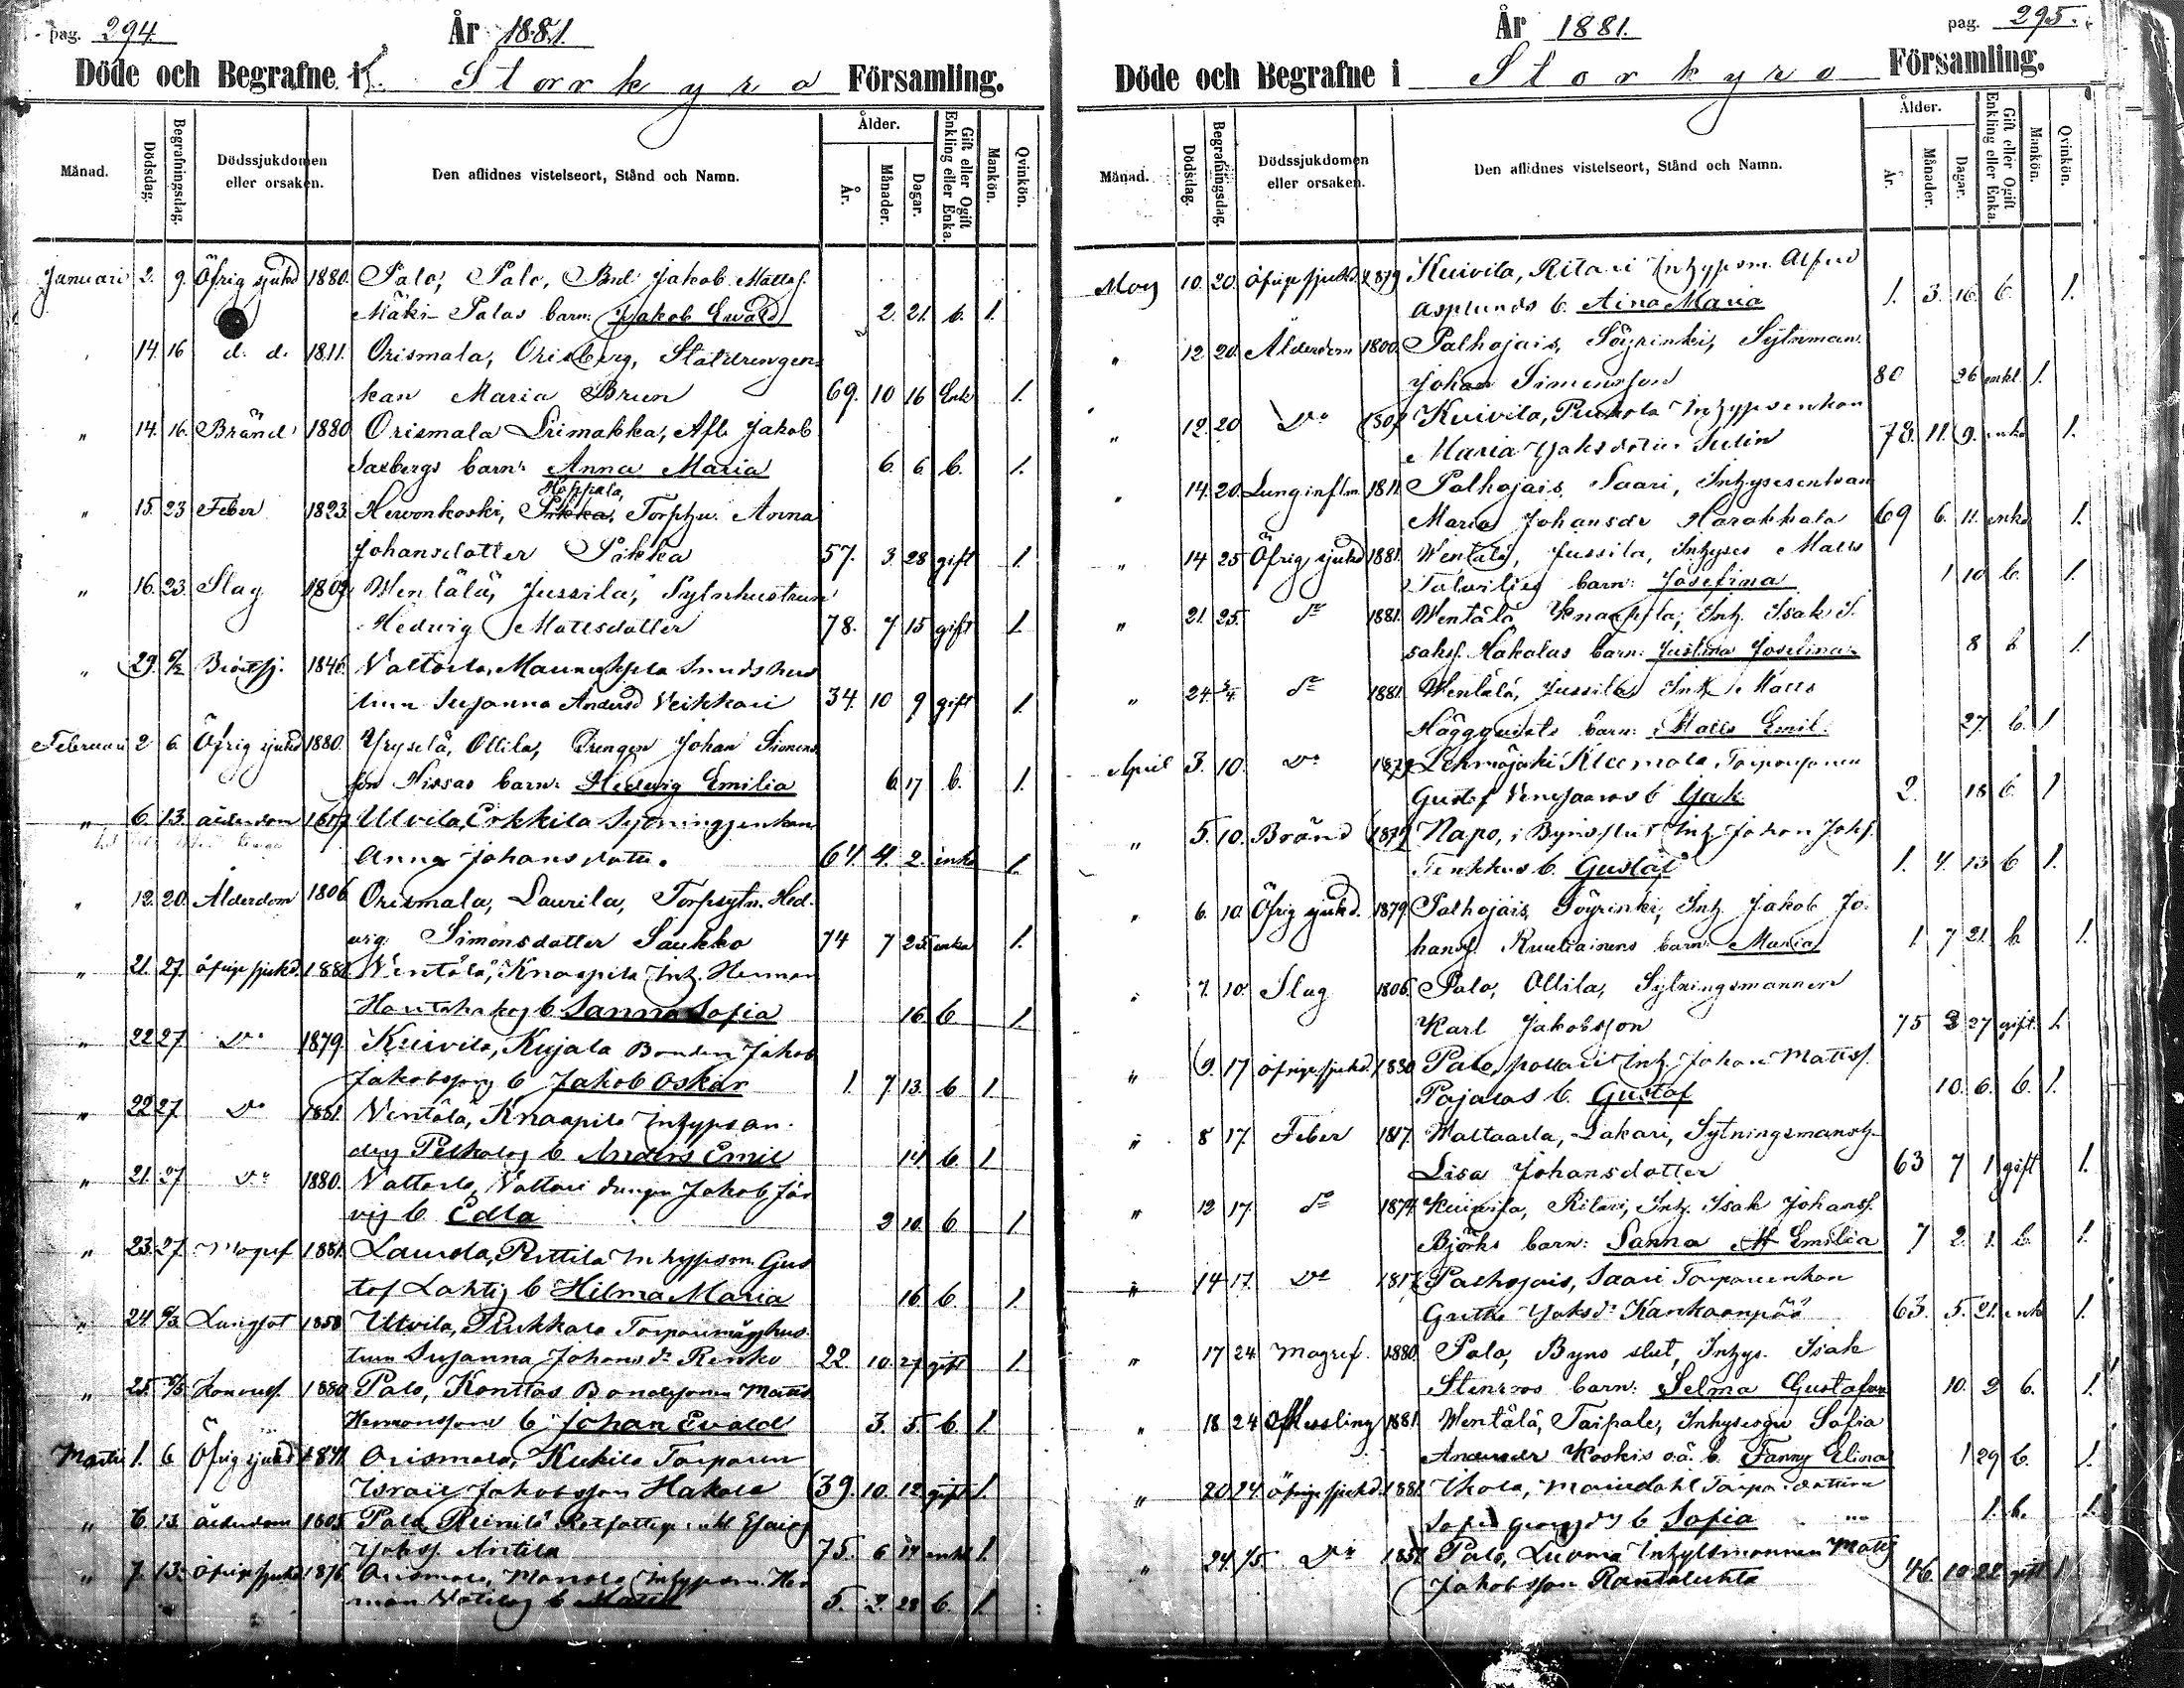 pag. 294
År 1881.
Döde och Begrafne i Storkyro Församling.
Månad. Dödsdag. Begrafningsdag. Dödssjukdomen eller orsaken. Den aflidnes vistelseort, Stånd och Namn. Ålder. År. Månader. Dagar. Gift eller Ogift Enkling eller Enka. Mankön. Qvinkön.
Januari 2. 9. Öfrig sjukd 1880. Palo, Palo, Bnd Jakob Mattsf.
Mäki-Palas barn: Jakob Ewald 2. 21. b. 1.
14. 16 d. d. 1811. Orismala, Orisberg, Statdrengen
kan Maria Brun 69. 10 16 Enk 1.
" 14. 16. Bränd 1880 Orismala Frimakka, Afl. Jakob
Saxbergs barn: Anna Maria 6. 6 b. 1.
Hoppala,
" 15. 23 Feber 1823. Herwonkoski, Torphu. Anna
Johansdotter Pikka 57. 3. 28 gift 1.
" 16. 23. Slag 1802 Wentälä, Jussila, Sytnhustrun
Hedwig Mattsdotter 78. 7 15 gift 1.
" 29. 6/2 1846. Valtarla,
Susanna Andersd Veikkari 34. 10 9 gift 1.
Februari 2 6. Öfrig sjukd 1880. Yryselä, Ollila, Drengen Johan Simons
son Nissas barn: Hedwig Emilia 6. 17 b. 1.
" 6. 13. ålderdom Ulvila, Erkkila
Anna Johansdotter 64. 4. 2. enka 1.
" 12. 20. Ålderdom 1806 Orismala, Laurila, Torpsytn. Hed-
wig Simonsdotter Saukko 74 7 25 enka 1.
" 21. 27. öfrige sjukd. 1881. Ventälä, Knaapila Inh. Herman
b Sanna Sofia 16 b 1.
" 22 27 Do 1879. Kuivila, Kujala Bonden Jakob
Jakobssons b Jakob Oskar 1. 7 13. b 1
" 22 27 Do 1881. Ventälä, Knaapila Inhyps an-
ders Pelkolas b Anders Emil 14 b. 1
" 21. 27 Do 1880. Valtarla, Valtari drengen Jakob Jär
vis b. Edla 2 10. b 1
" 23. 27 Magref 1881. Laurola, Perttilä Inhypsm. Gus
taf Lahtis b Hilma Maria 16 b. 1.
" 24 6/3 Lungsot 1858 Ulvila, Pukkala Torparemåghus-
trun Susanna Johans dr Renko 22. 10. 27 gift 1
" 25. 1880. Palo, Konttas Bondesonen Matts
Hermanssons b Johan Evald 3. 5. b. 1.
Martii 1. 6 Öfrig sjukd Orismala, Kukila Torparen
Israil Jakobsson Hakala 39. 10. 12 gift 1.
" 6. 13. ålderdom 1805 Palo, Reinilä
Johsf. Antila 75. 6 enkl 1.
" 7. 13. öfrige sjukd 1876. Orismala, Manole Inhypsm. Her
man b Matts 5. 2. 28 b. 1.
År 1881.
pag. 295.
Döde och Begrafne i Storkyro Församling.
Månad. Dödsdag. Begrafningsdag. Dödssjukdomen eller orsaken. Den aflidnes vistelseort, Stånd och Namn. Ålder. År. Månader. Dagar. Gift eller Ogift Enkling eller Enka. Mankön. Qvinkön.
10. 20. öfrige sjukd. 1879 Kuivila, Ritari Inhypsm. Alfred
Asplunds b. Aina Maria 1. 3. 16. b. 1.
" 12 20. Ålderdom 1800. Palhojais, Pöyrinki, Sytnman.
Johan Simonsson 80 26 enkl. 1.
" 12. 20 Do 1802 Kuivila, Inhypsenkan
Maria Jaksdotter 78. 11. 9. enka 1.
" 14. 20 Lunginflm. 1811. Palhojais, Saari, Inhysesenkan
Maria Johansdr Harakkala 69 6. 11. enka 1.
" 14 25 Öfrig sjukd 1881. Wentälä, Jussila, Inhyses Matts
barn: Josefina 1 10 b. 1.
" 21. 25. do 1881. Wentälä Knaapila, Inh. Isak I-
saksf. Hakalas barn: Justina Joselina 8 b 1.
" 24. 3/4 do 1881 Wentälä, Jussila Inh. Matts
Häggqvists barn: Matts Emil. 27 b. 1
April 3. 10. Do 1879 Lehmäjoki Kleemola Torparsonen
Gustaf b Isak 2. 18 b 1
" 5. 10. Bränd 1879 Napo, i Byns slut Inh. Johan Johsf.
b. Gustaf 1. 4. 13 b 1.
" 6. 10 Öfrig sjukd. 1879. Palhojais, Pöyrinki, Inh. Jakob Jo-
hansf. Ruutiainens barn: Maria 1. 7 21. b 1.
" 7. 10. Slag 1806. Palo, Ollila, Sytningsmannen
Karl Jakobsson 75 27 gift 1.
" 9. 17 öfrige sjukd. 1880 Palo, Pollari Inh. Johan Mattsf.
Pajalas b. Gustaf 10. 6. b. 1.
" 8 17. Feber 1817. Waltaarla, Lakari, Sytningsmansh.
Lisa Johansdotter 63 7 1 gift 1.
" 12 17. do 1874. Kuivila, Ritari, Inh. Isak Johansf.
Björks barn: Sanna Emilia 7 2. 1. b. 1.
" 14 17. Do 1817. Palhojais, Saari Torpareenkan
Greta Jaksdr Kankaanpää 63. 5. 21. enk 1.
" 17 24 Magref. 1880. Palo, Byns slut, Inhys. Isak
Stenroos barn: Selma Gustafva 10. 2 b. 1.
" 18 24 1881. Wentälä, Taipale, Inhysesqv Sofia
Koskis o.ä. b. Fanny Elina 1 29 b. 1.
" 20 24. öfrige sjukd. 1881. Ikola, Mariedahl
b Sofia 1. b. 1.
" 24. Do Palo, Luoma Inhysmannen Matts
Jakobsson Rantaluhta 46. 10 22 gift 1